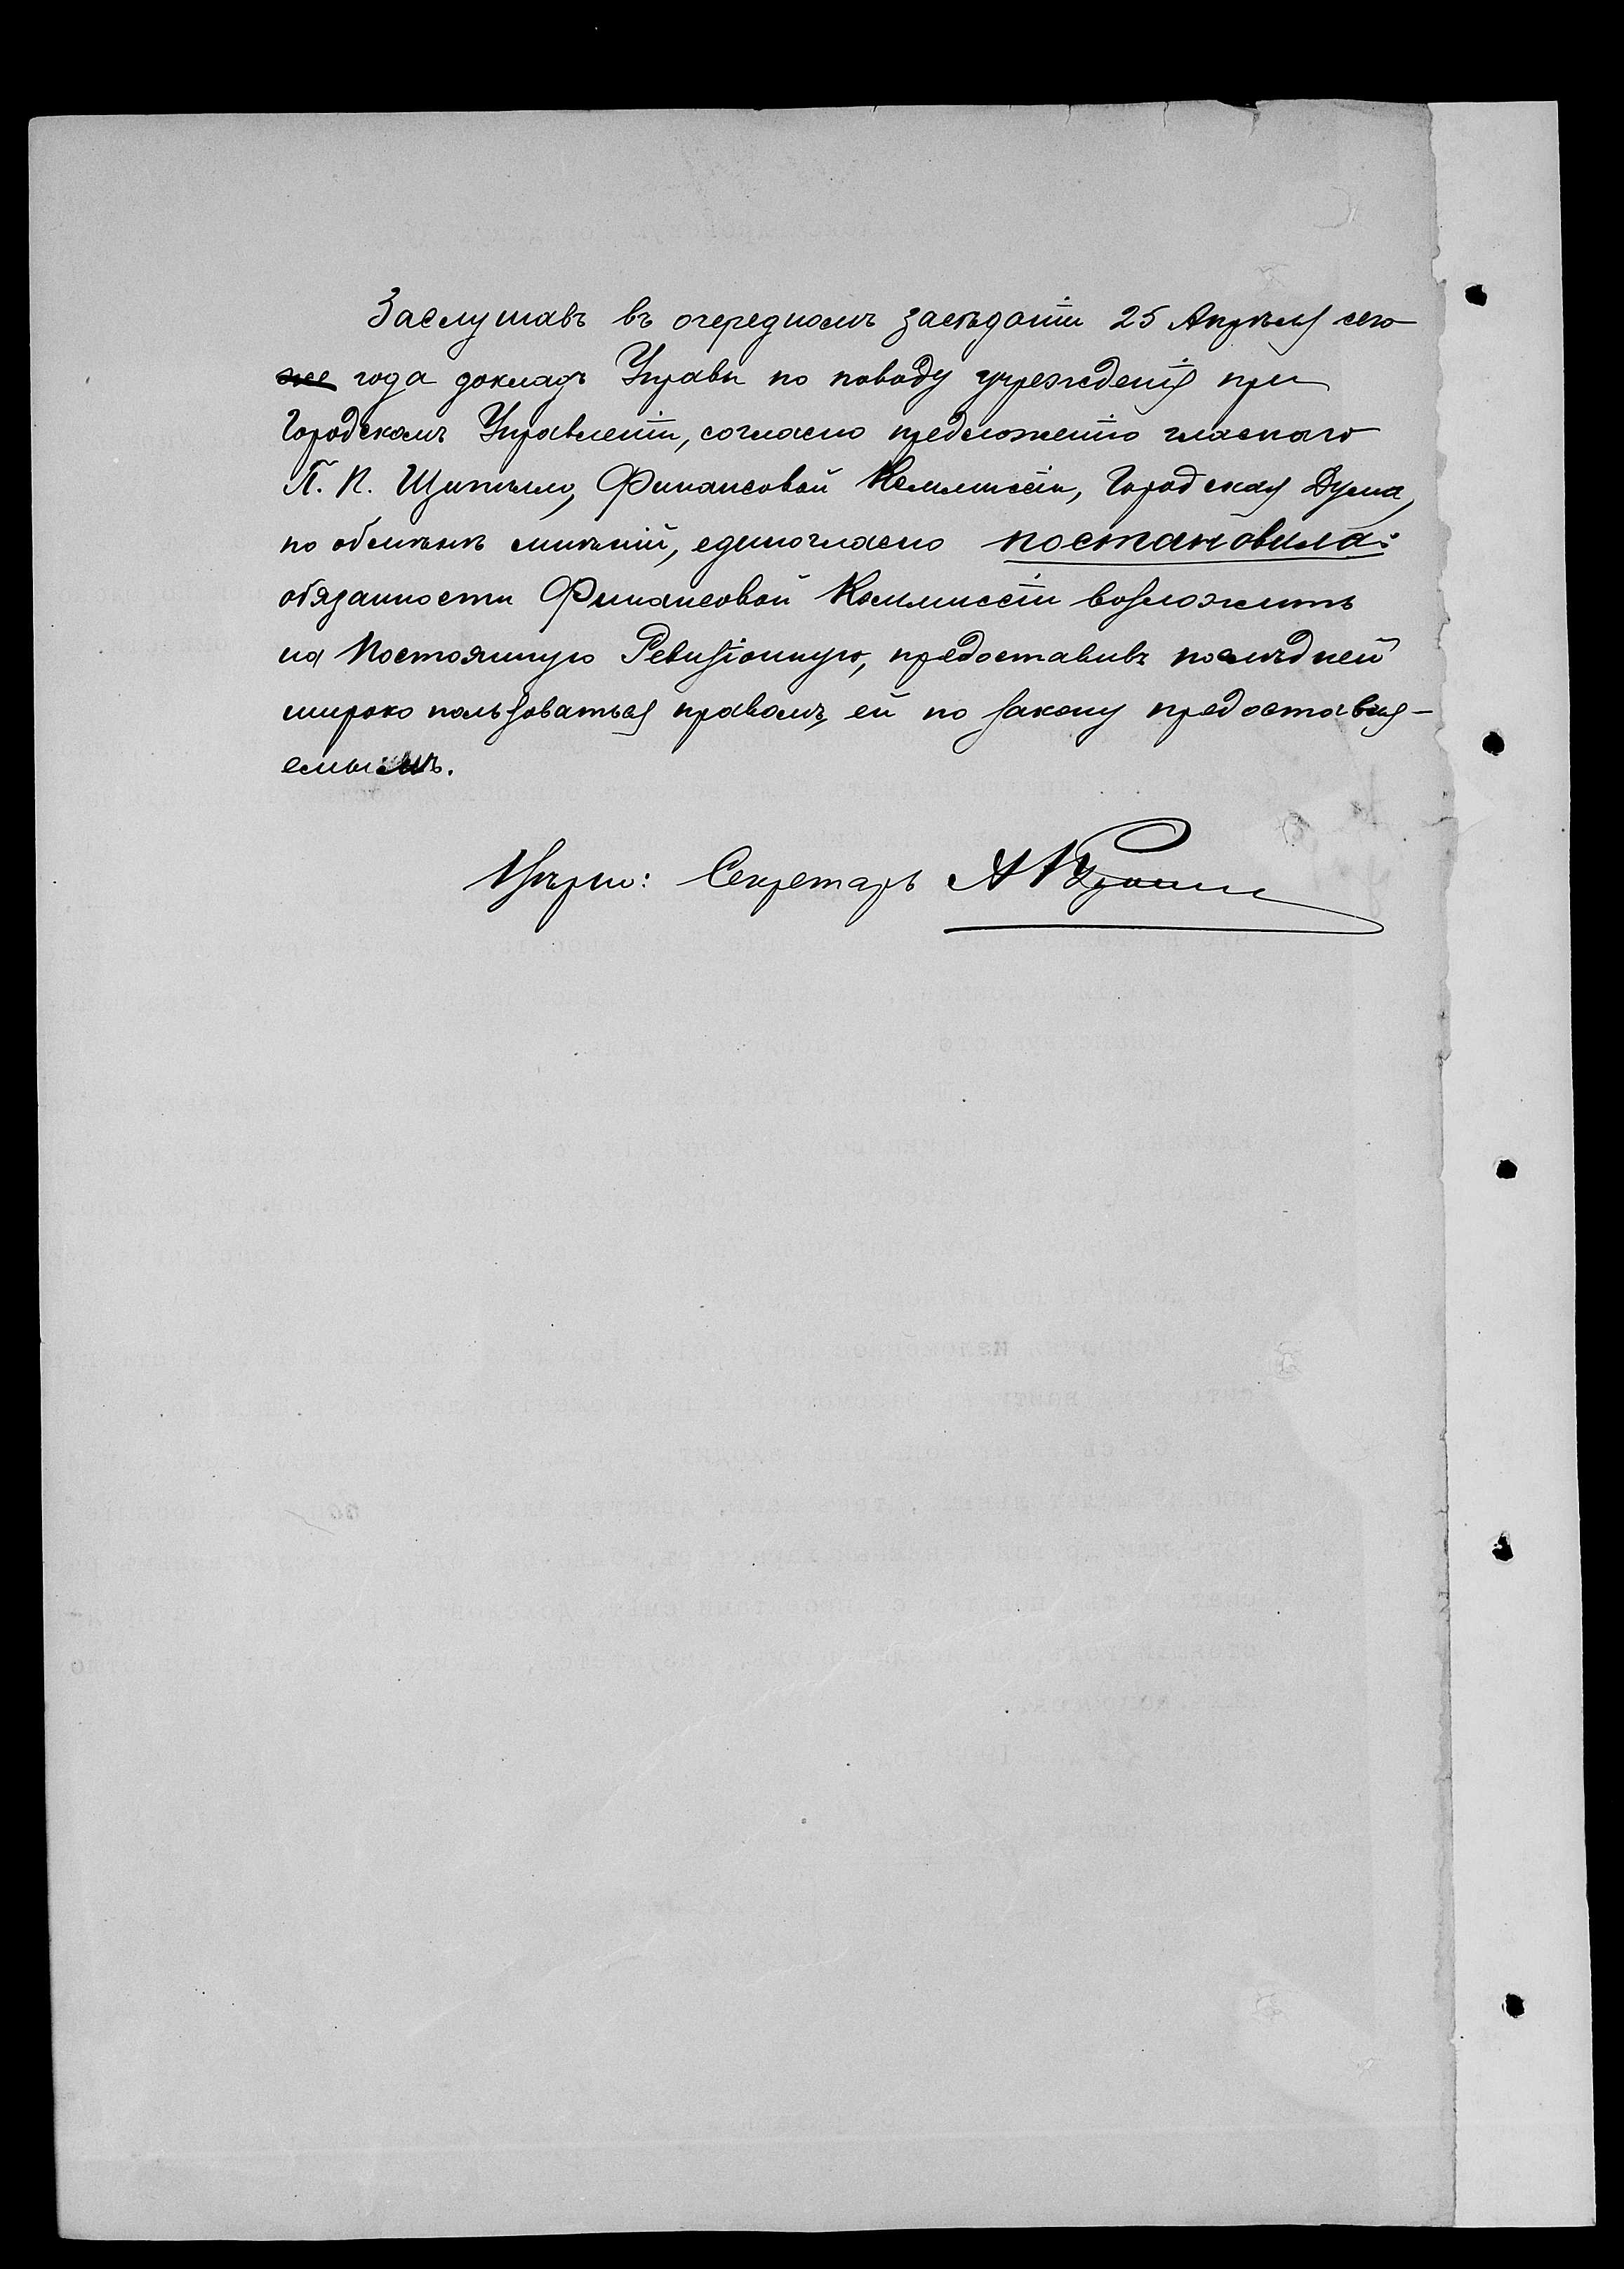 Заслушавъ въ очередномъ засѣданіи 25 Апрѣля сего
же года докладъ Управы по поводу учрежденія при
Городскомъ Управленіи, согласно предложенію гласнаго
П. П. Финансовой Коммиссіи, Городская Дума,
по обмѣнѣ мнѣній, единогласно постановила:
обязанности Финансовой Коммиссіи возложить
на Постоянную Ревизіонную, предоставивъ послѣдней
широко пользоваться правомъ, ей по закону предоставля-
емымъ.
Вѣрно: Секретарь